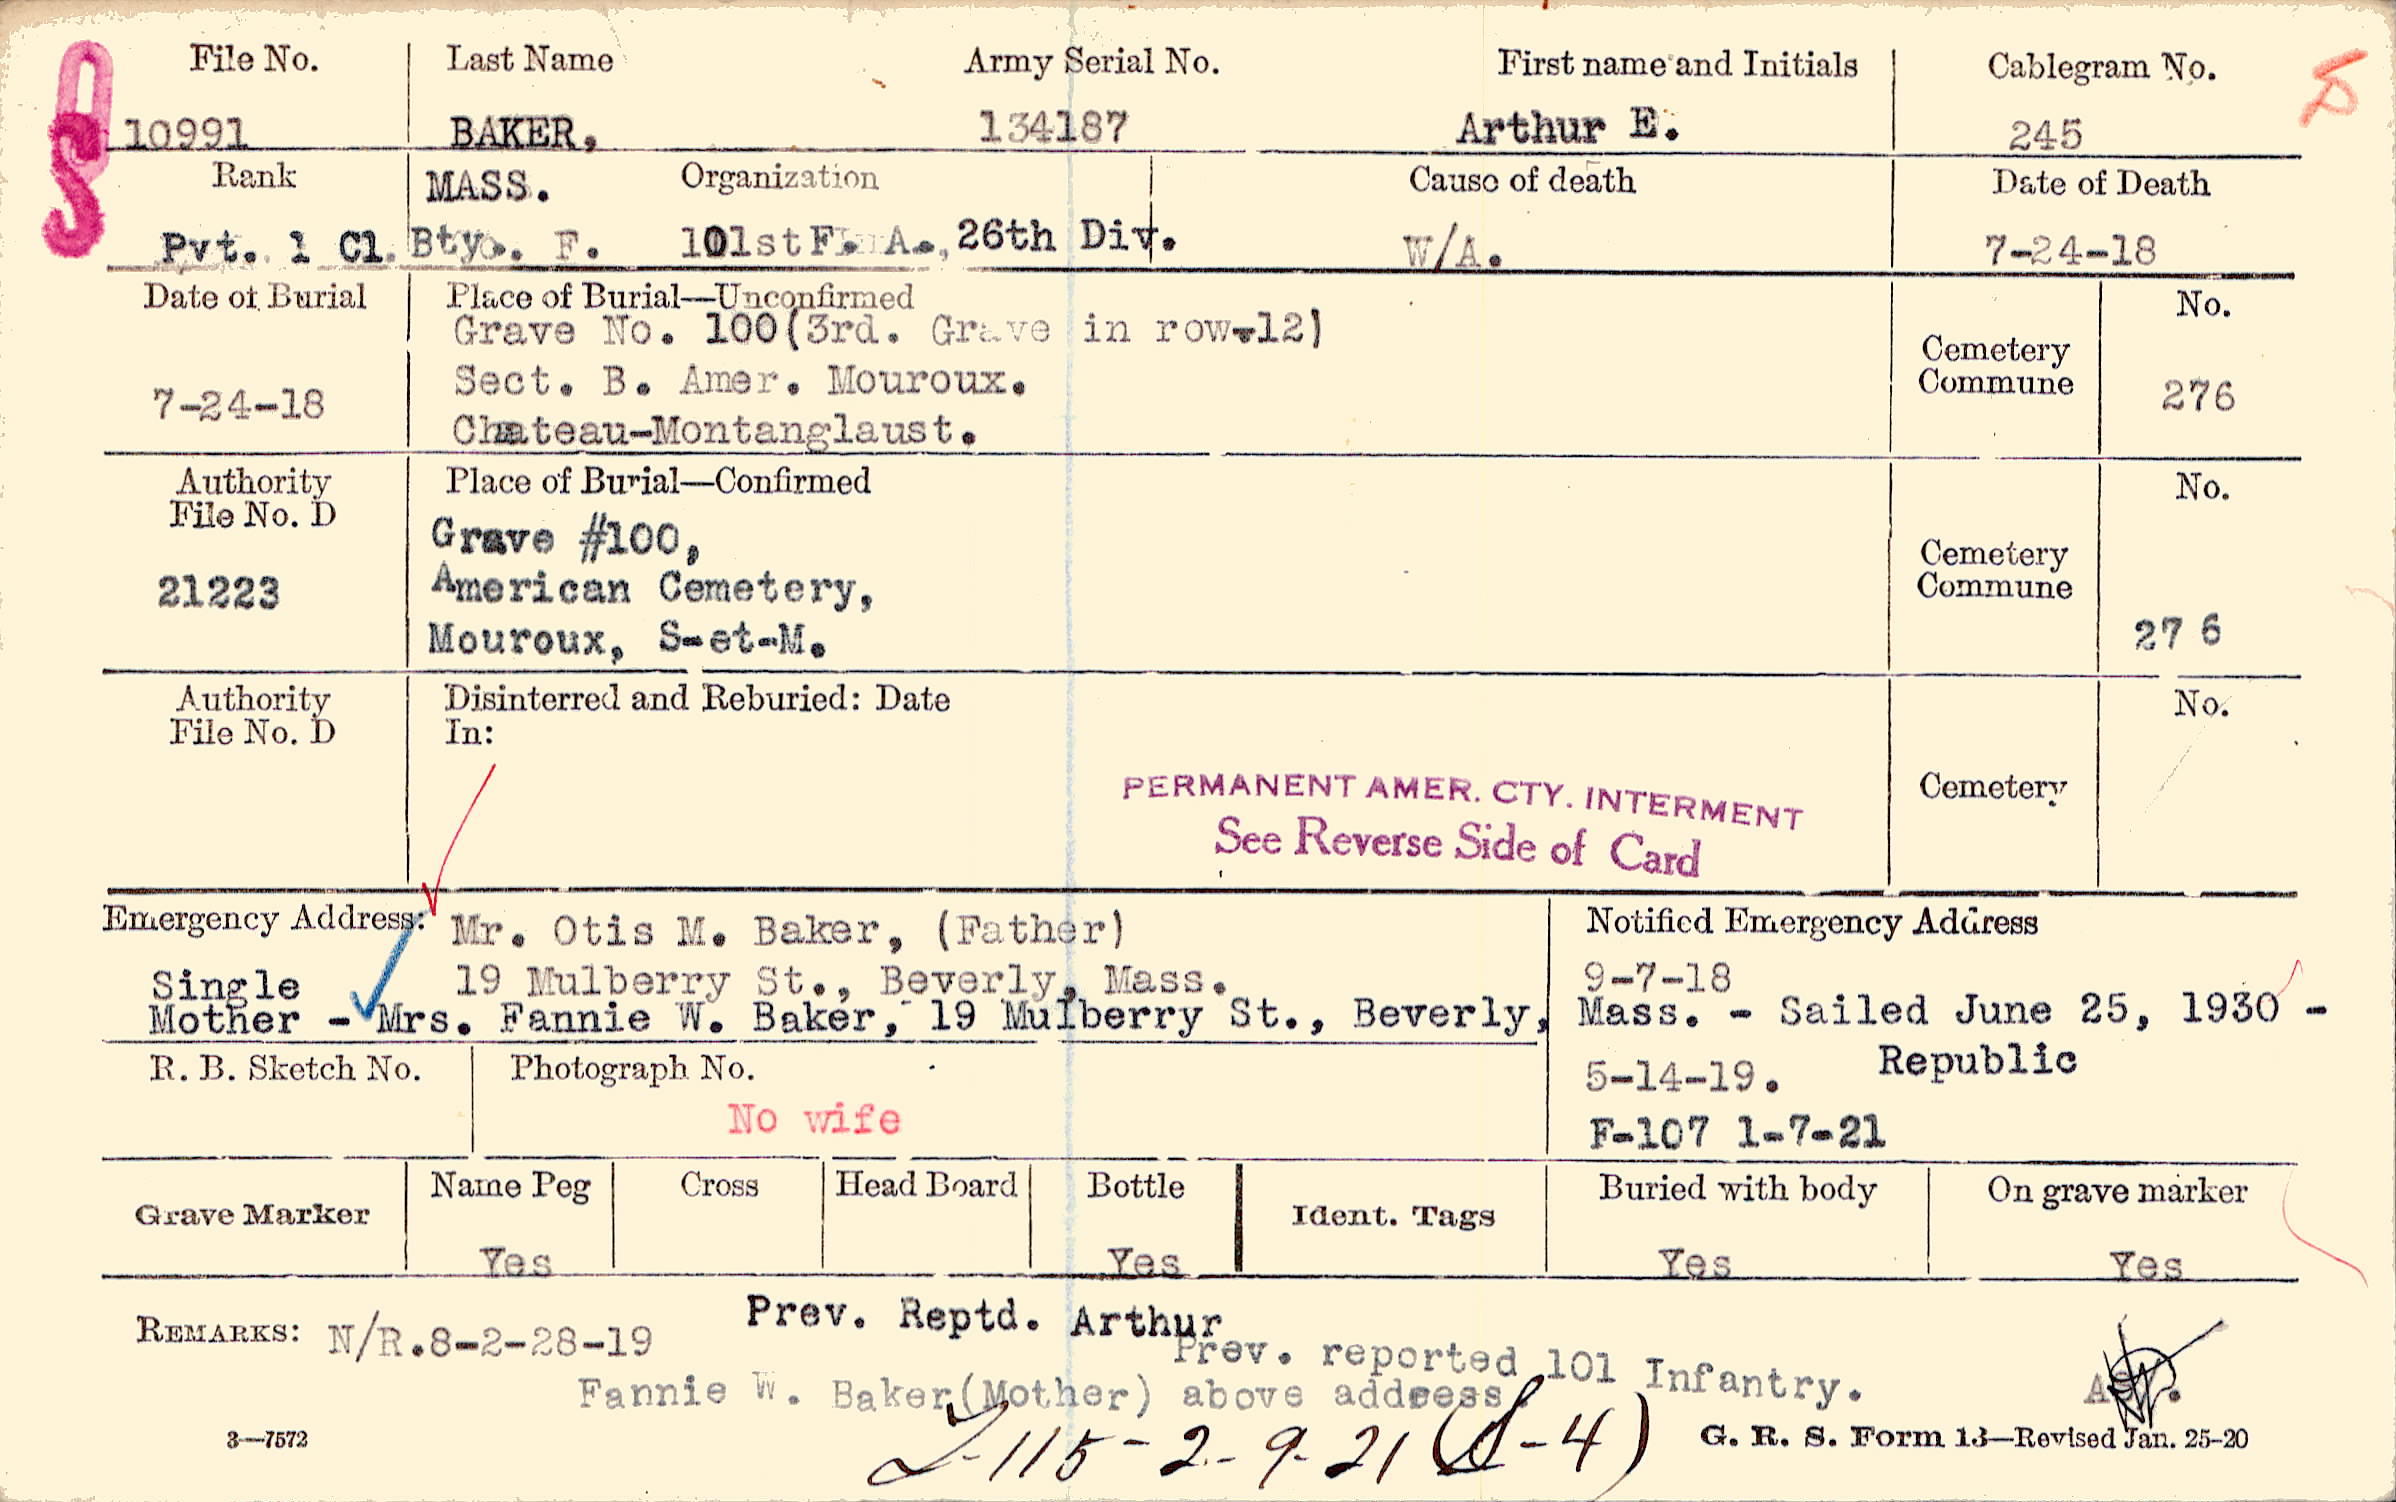 File No. Last Name Army Serial No. First name and Initials Cablegram No.
10991 BAKER, 134187 Arthur E. 245
Rank MASS. Organization Cause of death Date of Death
Pvt. 1 Cl. Bty. F. 101st F. A., 26th Div. W/A. 7-24-18
Date of Burial Place of Burial—Unconfirmed No.
Grave No. 100(3rd. Grave in row-12)
Cemetery
Commune
7-24-18 Sect. B. Amer. Mouroux. 276
Chateau-Montanglaust.
Authority Place of Burial—Confirmed No.
File No. D
Grave #100,
Cemetery
Commune
21223 American Cemetery,
Mouroux, S-et-M. 276
Authority Disinterred and Reburied: Date No.
File No. D In:
Cemetery
PERMANENT AMER. CTY. INTERMENT
See Reverse Side of Card
Emergency Address: Mr. Otis M. Baker, (Father) Notified Emergency Address
Single 19 Mulberry St., Beverly, Mass. 9-7-18
Mother - Mrs. Fannie W. Baker, 19 Mulberry St., Beverly, Mass. - Sailed June 25, 1930 -
R. B. Sketch No. Photograph No. 5-14-19. Republic
No wife F-107 1-7-21
Grave Marker Name Peg Cross Head Board Bottle Ident. Tags Buried with body On grave marker
Yes Yes Yes Yes
REMARKS: N/R.8-2-28-19 Prev. Reptd. Arthur
Prev. reported 101 Infantry.
Fannie W. Baker(Mother) above address.
L-115-2-9-21 (S-4)
3—7572 G. R. S. Form 13—Revised Jan. 25-20